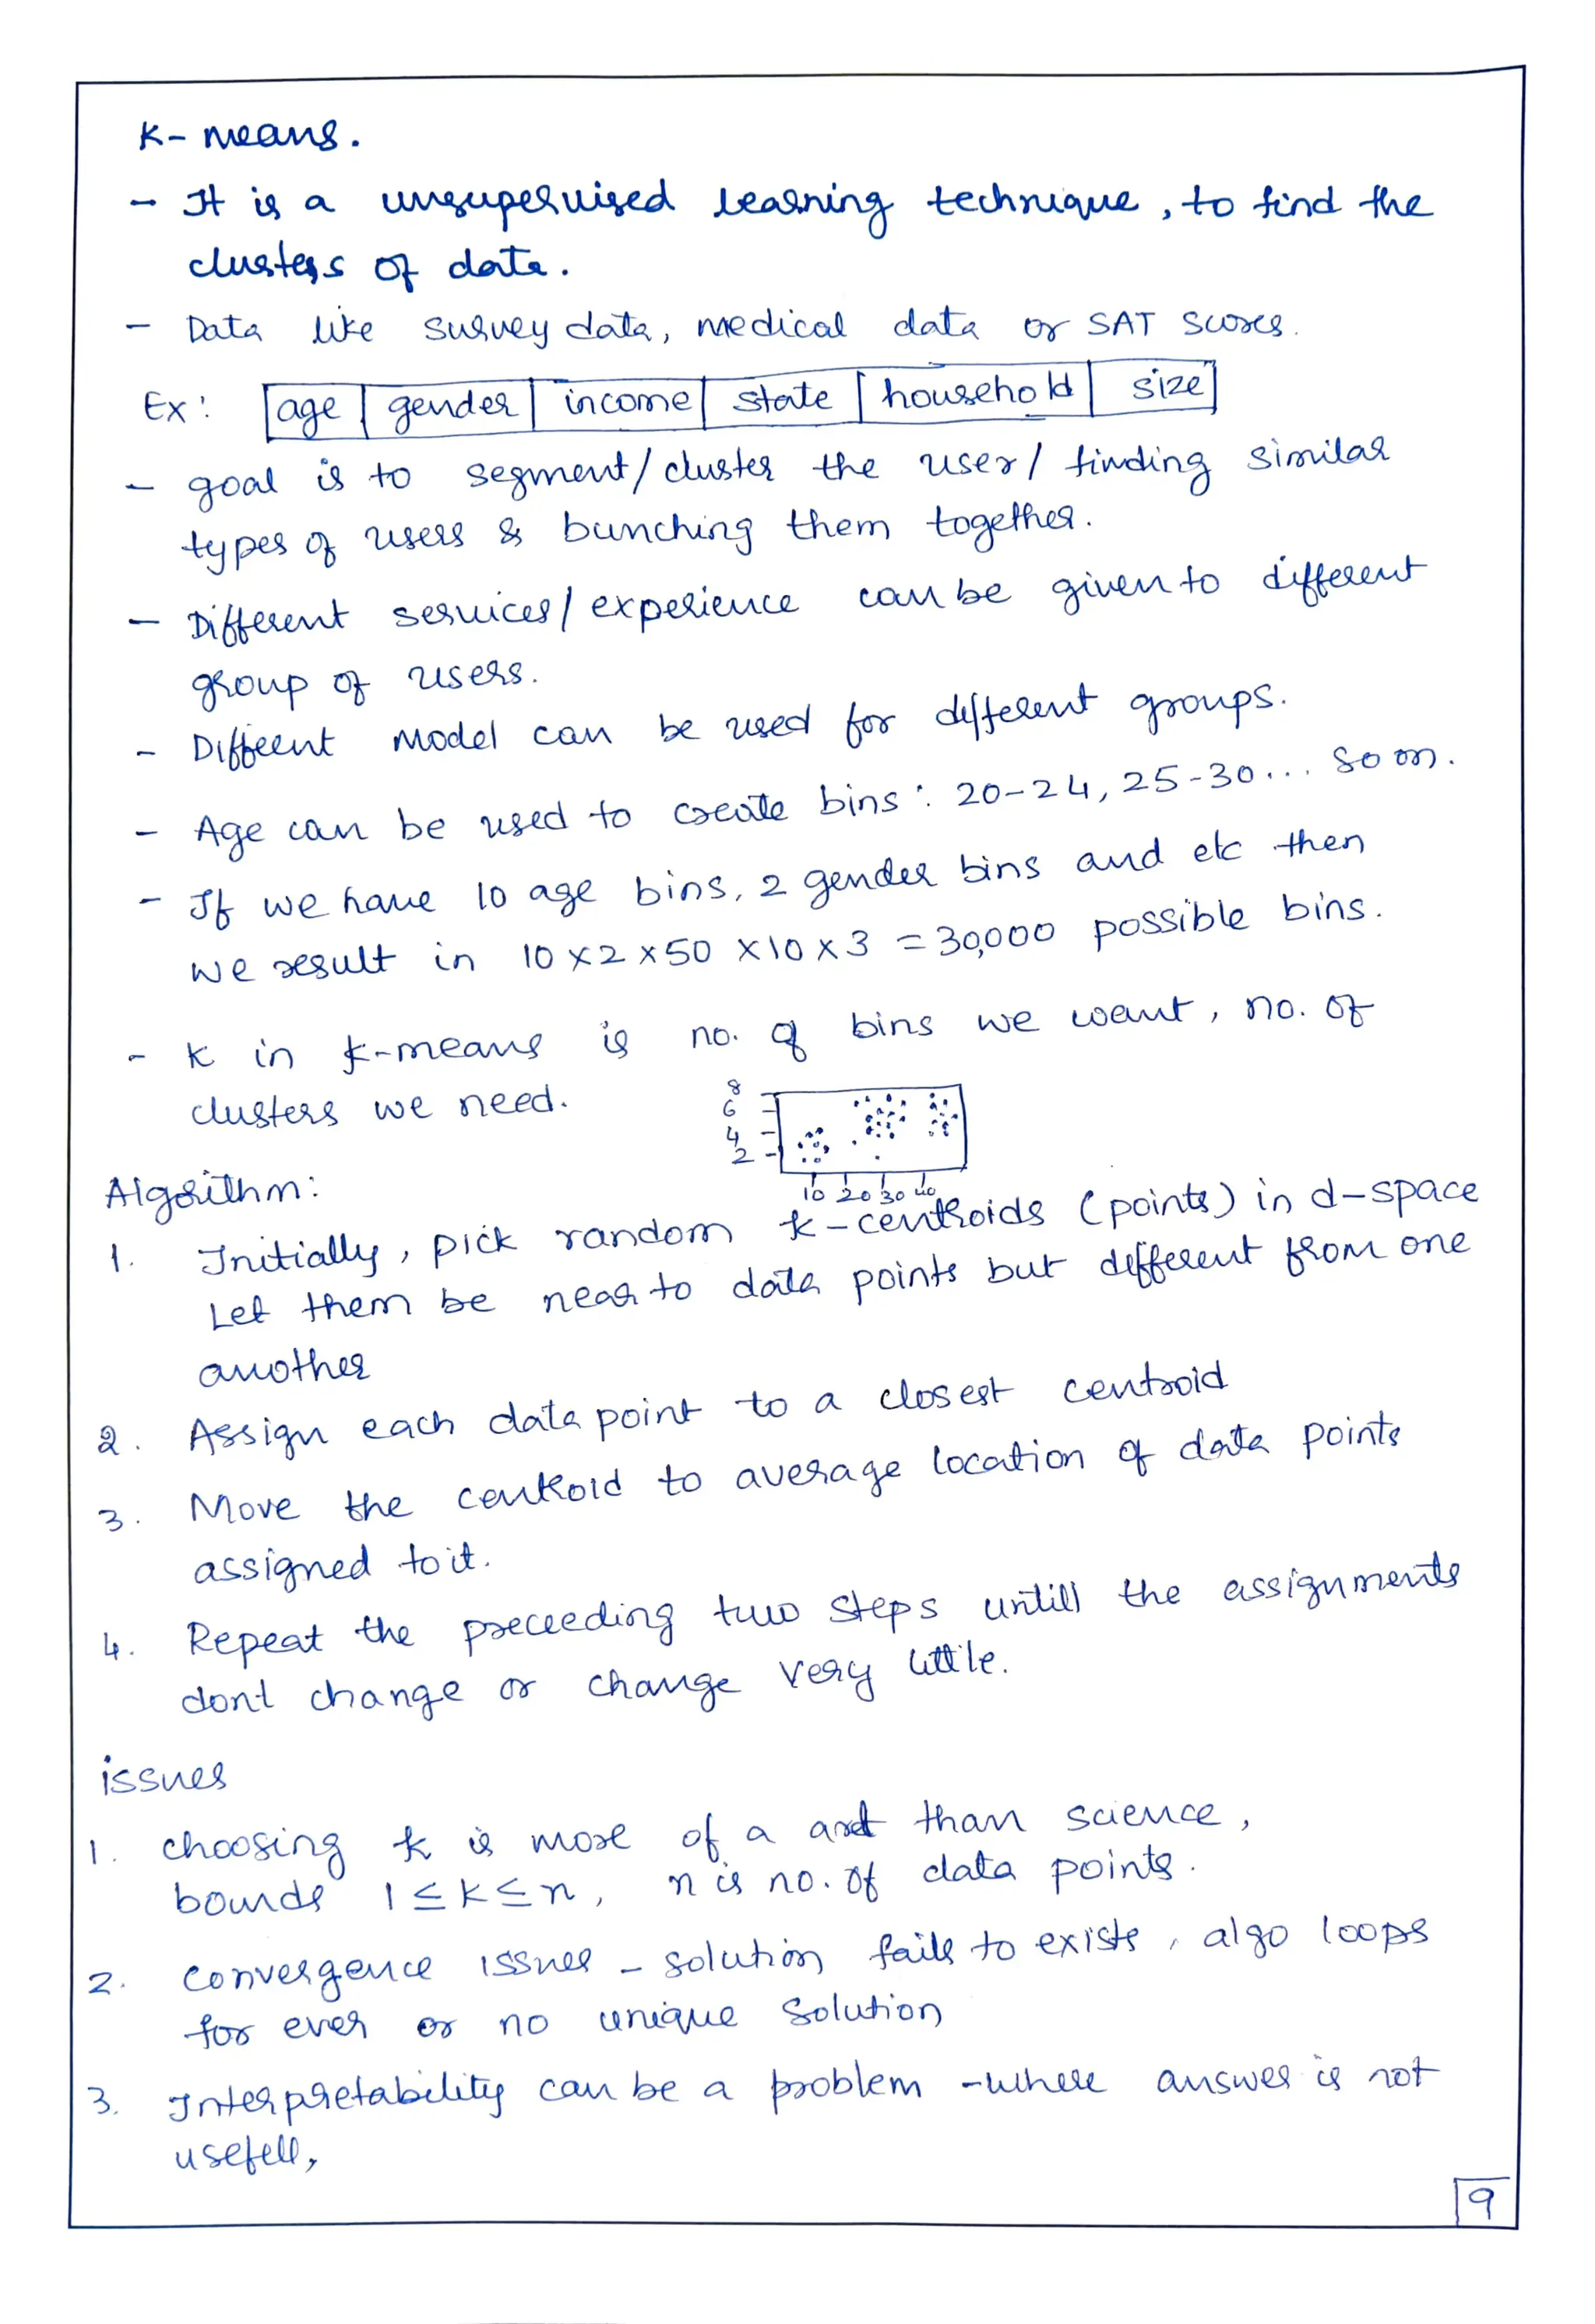 K- means.
- It is a unsupervised learning technique, to find the
clusters of data.
- Data like survey data, medical data or SAT scores.
Ex: age | gender | income | state | household | size
- goal is to segment/cluster the user/ finding similar
types of users & bunching them together.
- Different services/experience can be given to different
group of users.
- Diffeent model can be used for different groups.
- Age can be used to create bins: 20-24, 25-30... so on.
- If we have 10 age bins, 2 gender bins and etc then
we result in 10 x 2 x 50 x 10 x 3 = 30,000 possible bins.
- K in k-means is no. of bins we want, no. of
clusters we need.
8
6
4
2
10 20 30 40
Algorithm:
1. Initially, pick random k-centroids (points) in d-space
Let them be near to data points but different from one
another
2. Assign each data point to a closest centroid
3. Move the centroid to average location of data points
assigned to it.
4. Repeat the preceeding two steps untill the assignments
dont change or change very little.
issues
1. choosing k is more of a art than science,
bounds 1 ≤ k ≤ n, n is no. of data points.
2. convergence issues - solution fails to exists, algo loops
for ever or no unique solution
3. Interpretability can be a problem - where answer is not
usefull,
9